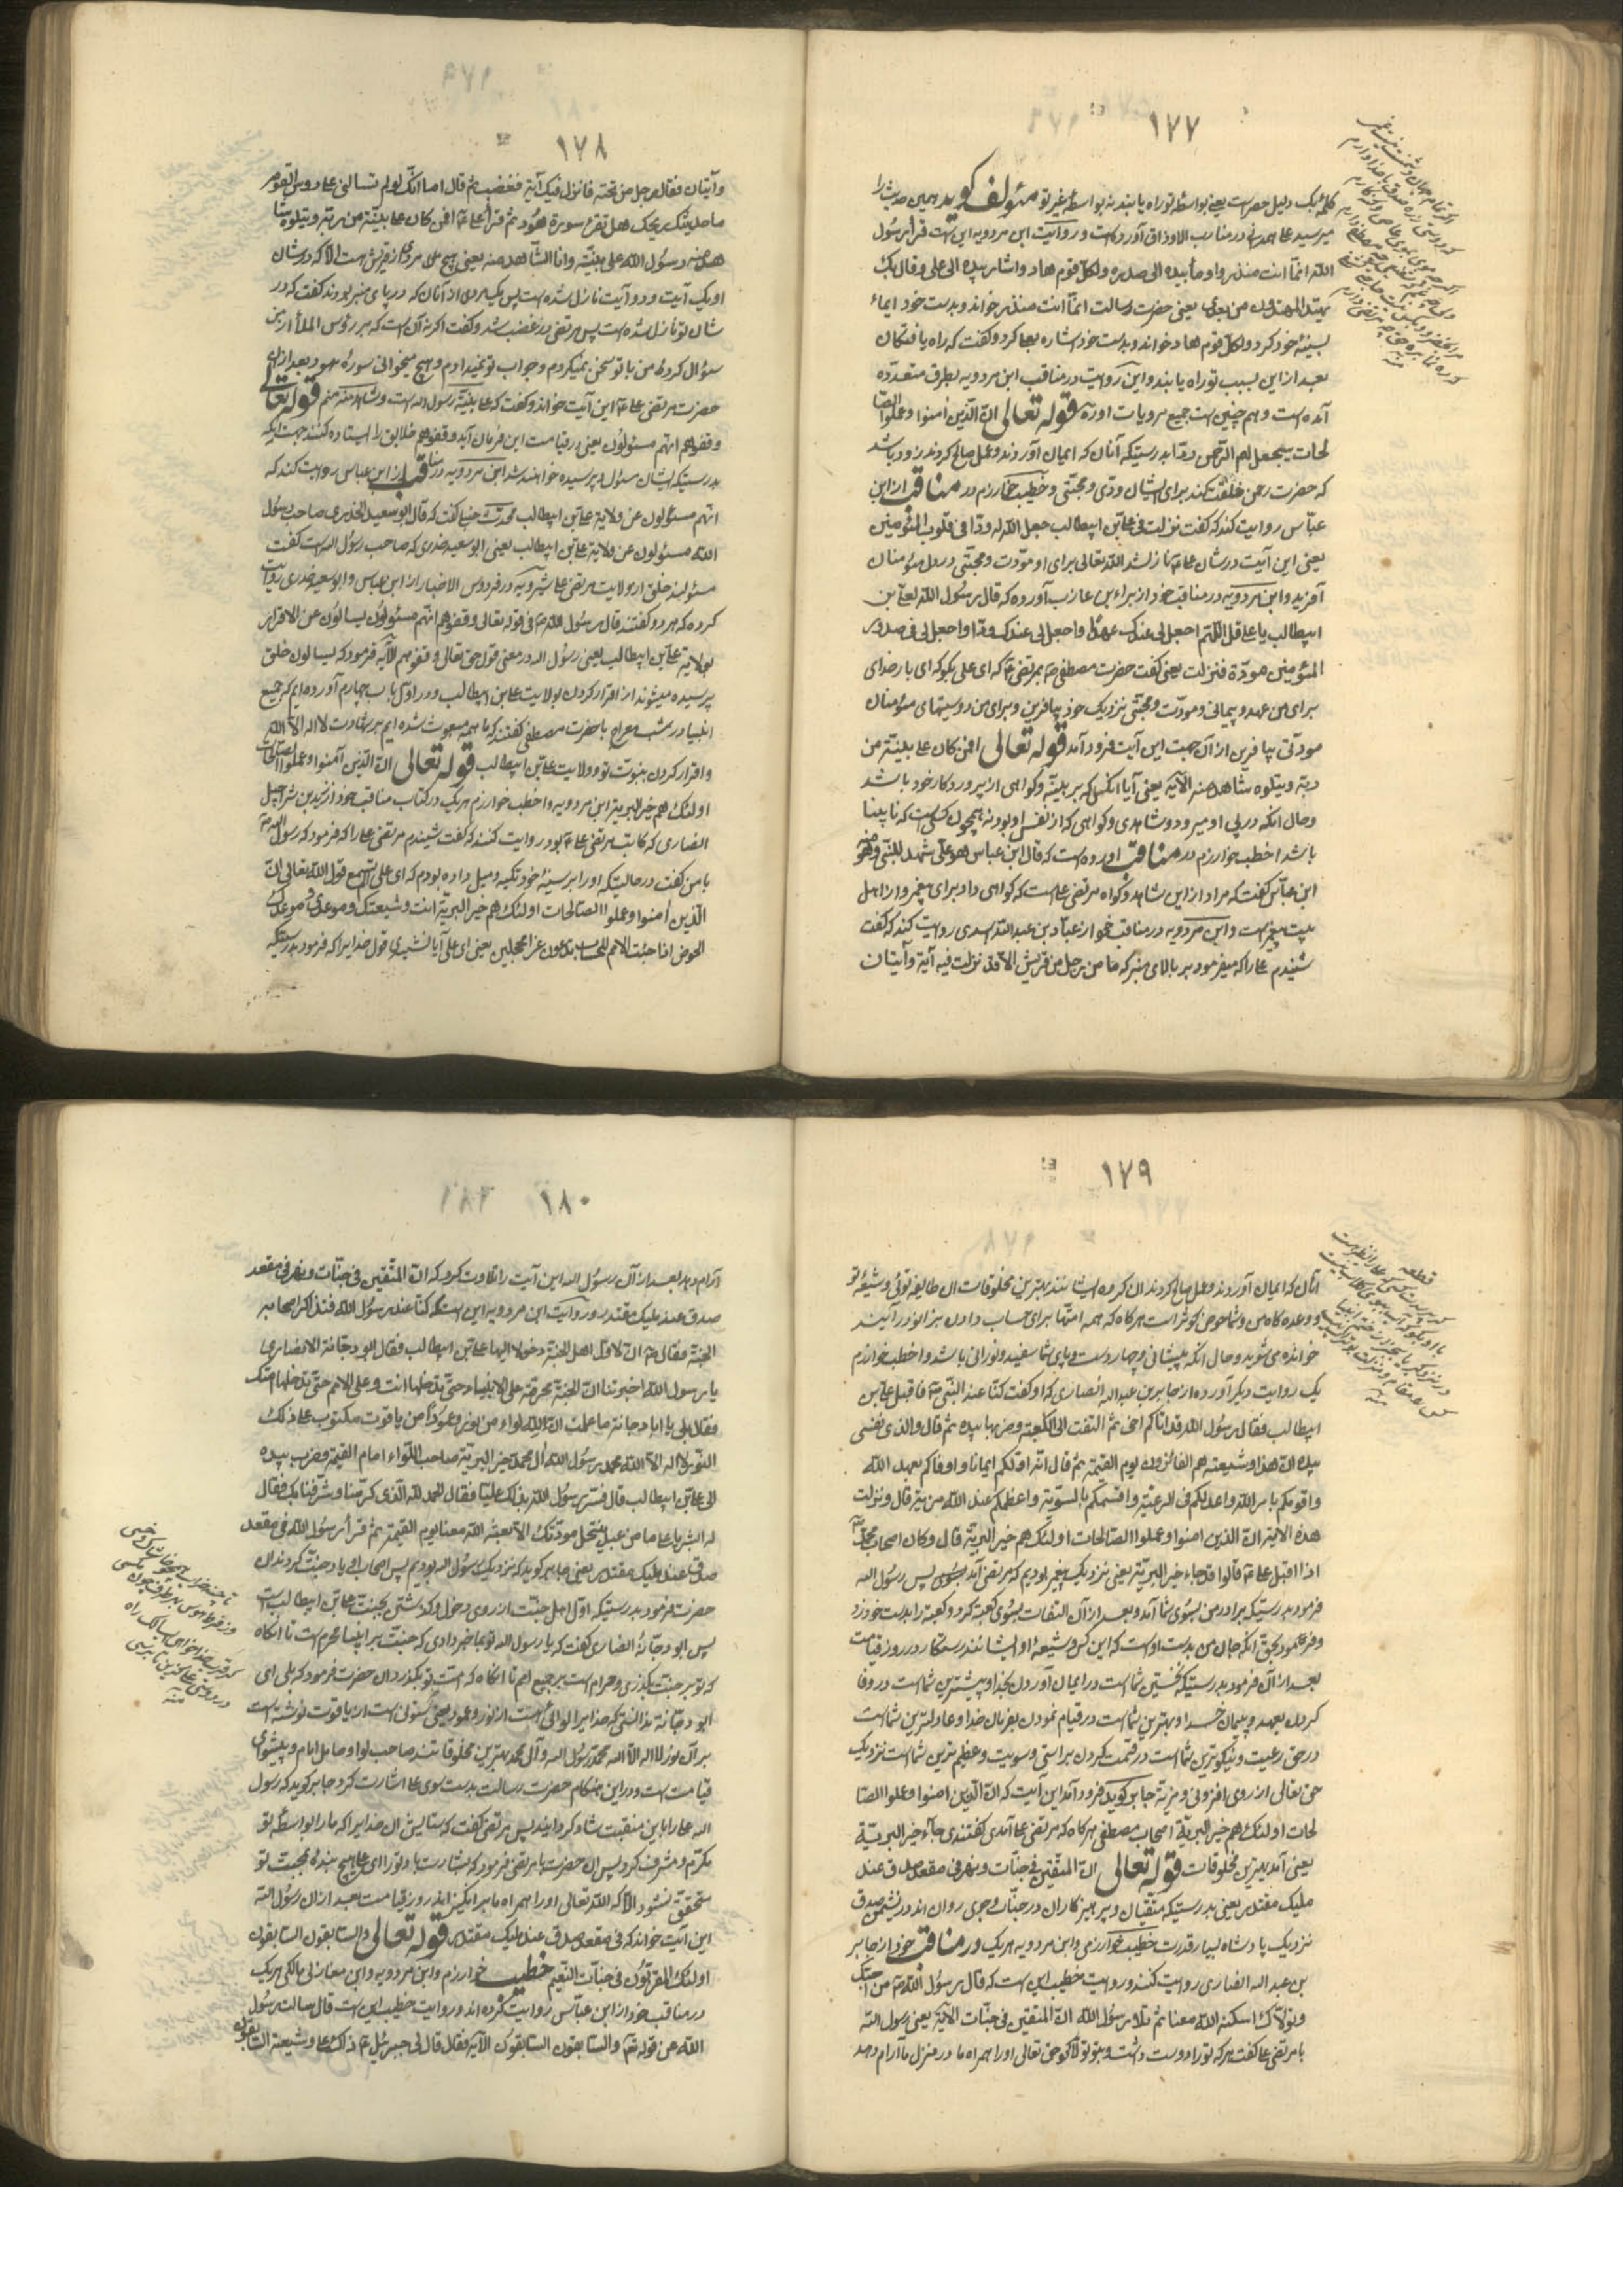 ١٧٧
كلمه بك دليل حصرست يعنى بواسطهٔ تو راه يابند نه بواسطهٔ غير تو مؤلف كويد همين حديث را
مير سيد على همدانى در مناقب آورده است و روايت ابن مردويه اين است قرأ رسُول
الله انّما انت منذر واومأ بيده الى صدره ولكل قوم هاد واشار بيده الى على وقال بك
يهتدى المهتدون من بعدى يعنى حضرت رسالت انما انت منذر خواند وبدست خود ايماء
بسينهٔ خود كرد ولكل قوم هاد خواند وبدست خود اشاره بعلى كرد وكفت كه راه يافتكان
بعد از اين بسبب تو راه يابند واين روايت در مناقب ابن مردويه بطرق متعدّده
آمده است وهم چنين است جميع مرويات او قوله تعالى انّ الّذين امنوا وعملوا الصا
لحات سيجعل لهم الرّحمن ودّا بدرستيكه آنان كه ايمان آوردند وعمل صالح كردند زود باشد
كه حضرت رحمن خلقت كند براى ايشان ودّى ومحبّتى وخطيب خوارزم در مناقب از ابن
عبّاس روايت كند كه كفت نزلت فى على بن ابيطالب جعل الله له ودّا فى قلوب المؤمنين
يعنى اين آيت در شان على نازل شد الله تعالى براى او مودّت ومحبّتى در دل مؤمنان
آفريد وابن مردويه در مناقب خود از براء بن عازب آورده كه قال رسُول الله لعلى بن
ابيطالب يا على قل اللّهم اجعل لى عندك عهدًا واجعل لى عندك ودّا واجعل لى فى صدور
المؤمنين مودّة فنزلت يعنى كفت حضرت مصطفى بمرتضى كه اى على بكو كه اى بار خداى
براى من عهد وپيمانى ومودّت ومحبّتى نزديك خود بيافرين وبراى من در سينهاى مؤمنان
مودّتى بيافرين از آن جهت اين آيت فرود آمد قوله تعالى افمن كان على بيّنة من
ربّه ويتلوه شاهد منه الآية يعنى آيا آنكس كه بر بيّنه وكواهى از پروردكار خود باشد
وحال آنكه در پى او ميرود وشاهدى وكواهى كه از نفس او بود نه همچون كسى است كه نابينا
باشد اخطب خوارزم در مناقب آورده است كه قال ابن عباس هو على شهد للنّبى وهو منه
ابن عبّاس كفت كه مراد از اين شاهد وكواه مرتضى على است كه كواهى داد براى پيغمبر واز اهل
بيت پيغمبر است وابن مردويه در مناقب خود از عبّاد بن عبد الله اسدى روايت كند كه كفت
شنيدم على را كه ميفرمود بر بالاى منبر كه ما من رجل من قريش الّا قد نزلت فيه آية وآيتان
١٧٨
وآيتان فقال رجل من تحته فانزل فيك آية فغضب ثم قال اما انّك لو لم تسألنى على رؤس القوم
ما حدثتك ويحك هل تقرء سورة هُود ثم قرأ على افمن كان على بيّنة من ربّه ويتلوه شا
هد منه رسُول الله على بيّنة وانا الشّاهد منه يعنى هيچ مردى از قريش نيست الّا كه در شان
او يك آيت ودو آيت نازل شده است پس يك مردى از آنان كه در پاى منبر بودند كفت كه در
شان تو نازل شده است پس مرتضى در غضب شد وكفت اكر نه آن است كه بر رؤس الملأ از من
سؤال كردى من با تو سخن نميكردم وجواب تو نميدادم وهيچ ميخوانى سورهٔ هود بعد از آن
حضرت مرتضى على اين آيت خواند وكفت كه على بيّنة رسول الله است وشاهد منه منم قوله تعالى
وقفوهم انهم مسئولُون يعنى در قيامت اين فرمان آيد وقفوهم خلايق را ايستاده كنند جهت آنكه
بدرستيكه ايشان مسؤل وپرسيده خواهند شد ابن مردويه در مناقب از ابن عباس روايت كند كه
انهم مسئولون عن ولاية على بن ابيطالب كفت كه قال ابو سعيد الخدرى صاحب رسُول
الله مسئولون عن ولاية على بن ابيطالب يعنى ابو سعيد خدرى كه صاحب رسول الله است كفت
مسئولند خلق از ولايت مرتضى على شيرويه در فردوس الاخبار از ابن عباس وابو سعيد خدرى روايت
كرده كه هر دو كفتند قال رسُول الله فى قوله تعالى وقفوهم انّهم مسئولُون يسألون عن الاقرار
بولاية على بن ابيطالب يعنى رسُول الله در معنى قول حق تعالى وقفوهم الآية فرمود كه يسألون خلق
پرسيده ميشوند از اقرار كردن بولايت على بن ابيطالب ودر اوّل باب چهارم آورده ايم كه جميع
انبيا در شب معراج با حضرت مصطفى كفتند كه ما همه مبعوث شده ايم بر شهادت لا اله الّا الله
واقرار كردن بنبوّت تو وولايت على بن ابيطالب قوله تعالى انّ الّذين آمنوا وعملوا الصّالحات
اولئك هم خير البريّة ابن مردويه واخطب خوارزم هر يك در كتاب مناقب خود از يزيد بن شراحيل
انصارى كه كاتب مرتضى على بود روايت كنند كه كفت شنيدم مرتضى على را كه فرمود كه رسول الله
با من كفت در حالتيكه او را بر سينهٔ خود تكيه وميل داده بودم كه اى على الم تسمع قول الله تعالى انّ
الّذين آمنوا وعملوا الصّالحات اولئك هم خير البريّة انت وشيعتك وموعدى وموعدكم
الحوض اذا جئت الامم للحساب تدعون غرّا محجلين يعنى اى على آيا نشنيدى قول خدايرا كه فرمود بدرستيكه
١٧٩
قطعه
آنان كه ايمان آوردند وعمل صالح كردند آن كروه ايشانند بهترين مخلوقات آن طايفه توئى وشيعهٔ تو
ووعده كاه من وشما حوض كوثر است هر كاه كه همه امّتها براى حساب دادن بزانو در آيند
خوانده مى شويد وحال آنكه پيشانى وچهار دست وپاى شما سفيد ونورانى باشد واخطب خوارزم
يك روايت ديكر آورده از جابر بن عبد الله انصارى كه او كفت كنّا عند النّبى فاقبل على بن
ابيطالب فقال رسُول الله قد اتاكم اخى ثم التفت الى الكعبة وضربها بيده ثم قال والذى نفسى
بيده انّ هذا وشيعته هم الفائزون يوم القيمة ثم قال انّه اوّلكم ايمانا واوفاكم بعهد الله
واقومكم بامر الله واعدلكم فى الرعيّة واقسمكم بالسّويّة واعظمكم عند الله مزيّة قال ونزلت
هذه الاية انّ الذين امنوا وعملوا الصّالحات اولئك هم خير البريّة قال وكان اصحاب محمّد
اذا اقبل على قالوا قد جاء خير البريّة يعنى نزديك پيغمبر بوديم كه مرتضى آمد پس رسُول الله
فرمود بدرستيكه برادر من بسُوى شما آمد وبعد از آن التفات بسُوى كعبه كرد وكعبه را بدست خود زد
وفرمود بحق آنكه جان من بدست اوست كه اين كس وشيعهٔ او ايشانند رستكار در روز قيامت
بعد از آن فرمود بدرستيكه نخستين شماست در ايمان آوردن بخدا وبيشترين شماست در وفا
كردن بعهد وپيمان خدا وبهترين شماست در قيام نمودن بفرمان خدا وعادلترين شماست
در حق رعيت ونيكوترين شماست در قسمت كردن براستى وسويت وعظيم ترين شماست نزديك
حق تعالى از روى افزونى ومزيّة جابر كويد كه فرود آمد اين آيت كه انّ الّذين امنوا وعملوا الصّا
لحات اولئك هم خير البريّة اصحاب مصطفى هر كاه كه مرتضى على آمدى كفتندى جآء خير البريّة
يعنى آمد بهترين مخلوقات قوله تعالى انّ المتّقين فى جنّات ونهر فى مقعد صدق عند
مليك مقتدر يعنى بدرستيكه متقيان وپرهيزكاران در جنّات وجوى روان اند در نشيمن صدق
نزديك پادشاه بسيار قدرت خطيب خوارزمى وابن مردويه هر يك در مناقب خود از جابر
بن عبد الله انصارى روايت كنند وروايت خطيب اين است كه قال رسُول الله من احبّك
وتولّاك اسكنه الله معنا ثم تلا رسُول الله انّ المتقين فى جنّات الآية يعنى رسول الله
با مرتضى على كفت هر كه تو را دوست داشت وبتو تولّا كرد حق تعالى او را همراه ما در منزل ما آرام دهد
١٨٠
آرام دهد بعد از آن رسُول الله اين آيت را تلاوت كرد كه انّ المتّقين فى جنّات ونهر فى مقعد
صدق عند مليك مقتدر وروايت ابن مردويه اين است كه كنّا عند رسُول الله فتذاكر اصحابه
الجنّة فقال انّ لاوّل اهل الجنّة دخولا اليها على بن ابيطالب فقال ابو دجانة الانصارى
يا رسول الله اخبرتنا انّ الجنّة محرّمة على الانبياء حتّى تدخلها انت وعلى الامم حتّى تدخلها امّتك
فقال بلى يا ابا دجانة ما علمت انّ لله لواء من نور وعمودًا من ياقوت مكتوب على ذلك
النّور لا اله الّا الله محمد رسُول الله آل محمد خير البريّة صاحب اللّواء امام القيمة وضرب بيده
الى على بن ابيطالب قال فسّر رسُول الله بذلك عليّا فقال الحمد لله الّذى كرّمنا وشرّفنا بك فقال
له ابشر يا على ما من عبد ينتحل مودّتك الّا بعثه الله معنا يوم القيمة ثم قرأ رسُول الله فى مقعد
صدق عند مليك مقتدر يعنى جابر كويد كه نزديك رسُول الله بوديم پس اصحاب او ياد جنّت كردند آن
حضرت فرمود بدرستيكه اوّل اهل جنّت از روى دخول وكذشتن بجنّت على بن ابيطالب است
پس ابو دجانهٔ انصارى كفت كه يا رسول الله تو ما خبر دادى كه جنّت بر انبيا محرم است تا آنكاه
كه تو بر جنّت بكذرى وحرام است بر جميع امم تا آنكاه كه امّت تو بكذرد آن حضرت فرمود كه بلى اى
ابو دجانه ندانستى كه خدايرا لوائى است از نور وعمود يعنى ستونى است از ياقوت نوشته است
بر آن نور لا اله الّا الله محمد رسُول الله وآل محمد بهترين مخلوقاتند صاحب لوا وحامل امام وپيشواى
قيامت است ودر اين هنكام حضرت رسالت بدست بسوى على اشارت كرد جابر كويد كه رسول
الله على را باين منقبت شاد كردانيد پس مرتضى كفت كه ستايش آن خدايرا كه ما را بواسطهٔ تو
مكرّم ومشرف كرد پس آن حضرت با مرتضى فرمود كه بشارت باد تو را اى على هيچ بندهٔ بمحبت تو
متحقق نشود الّا كه الله تعالى او را همراه ما برانكيزاند روز قيامت بعد از آن رسُول الله
اين آيت خواند كه فى مقعد صدق عند مليك مقتدر قوله تعالى والسّابقون السّابقون
اولئك المقرّبُون فى جنّات النّعيم خطيب خوارزم وابن مردويه وابن مغازلى مالكى هر يك
در مناقب خود از ابن عبّاس روايت كرده اند وروايت خطيب اين است قال سالت رسُول
الله عن قوله والسّابقون السّابقُون الآية فقال قال لى جبرئيل ذاك على وشيعته السّابقُون